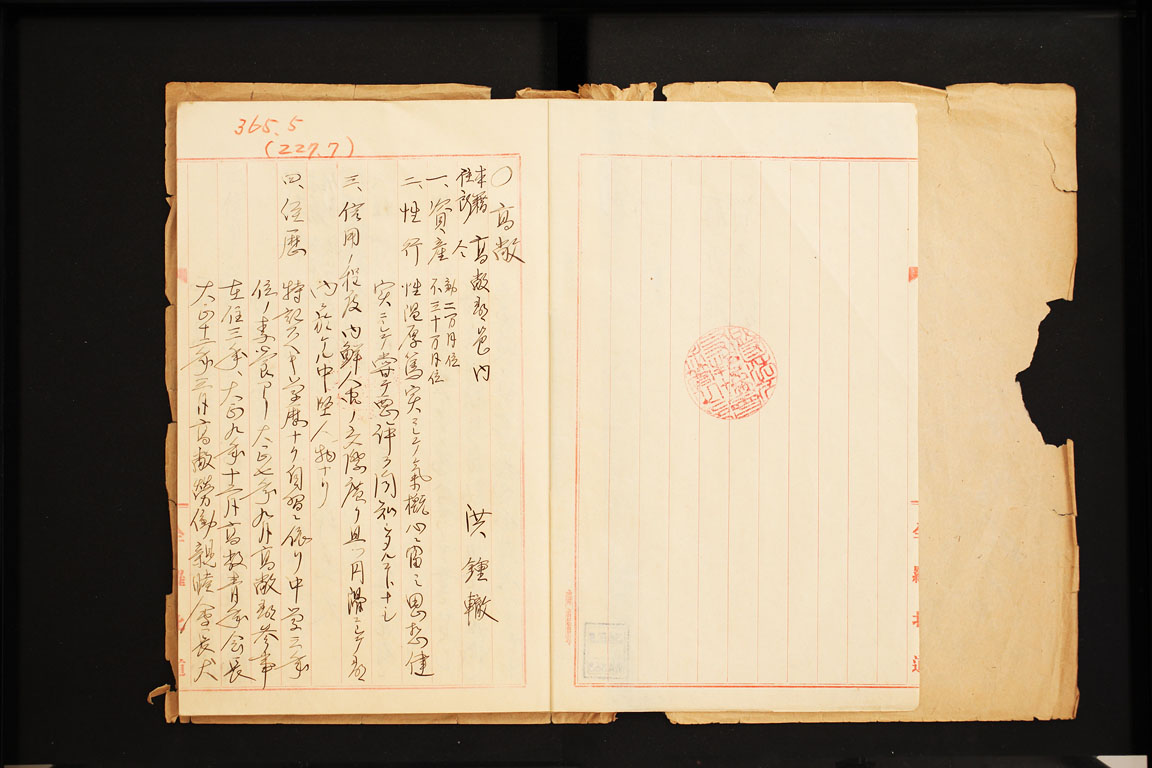 365.5
(227.7)
〇 高敞
本籍 高敞郡邑内 洪鍾轍
住所 仝
一、資産 動 二万円位
不 三十万円位
二、性行 性温厚篤実ニシテ気概心ニ富ミ思想健
実ニシテ曽テ要件ヲ聞知シタルコトナシ
三、信用ノ程度 内鮮人間ノ交際広ク且ツ円滑ニシテ郡
内ニ於ケル中堅人物ナリ
四、経歴 特記スヘキ学歴ナク自習ニ依リ中学三年
位ノ素養アリ大正七年九月高敞郡参事
在任三年、大正九年十二月高敞青年会長
大正十三年三月高敞労働親睦会長犬
全羅北道